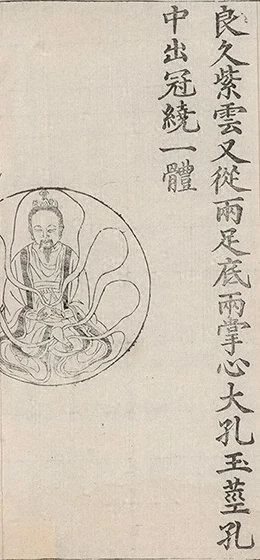 良久紫雲又從兩足底兩掌心大孔玉莖孔
中出冠繞一體